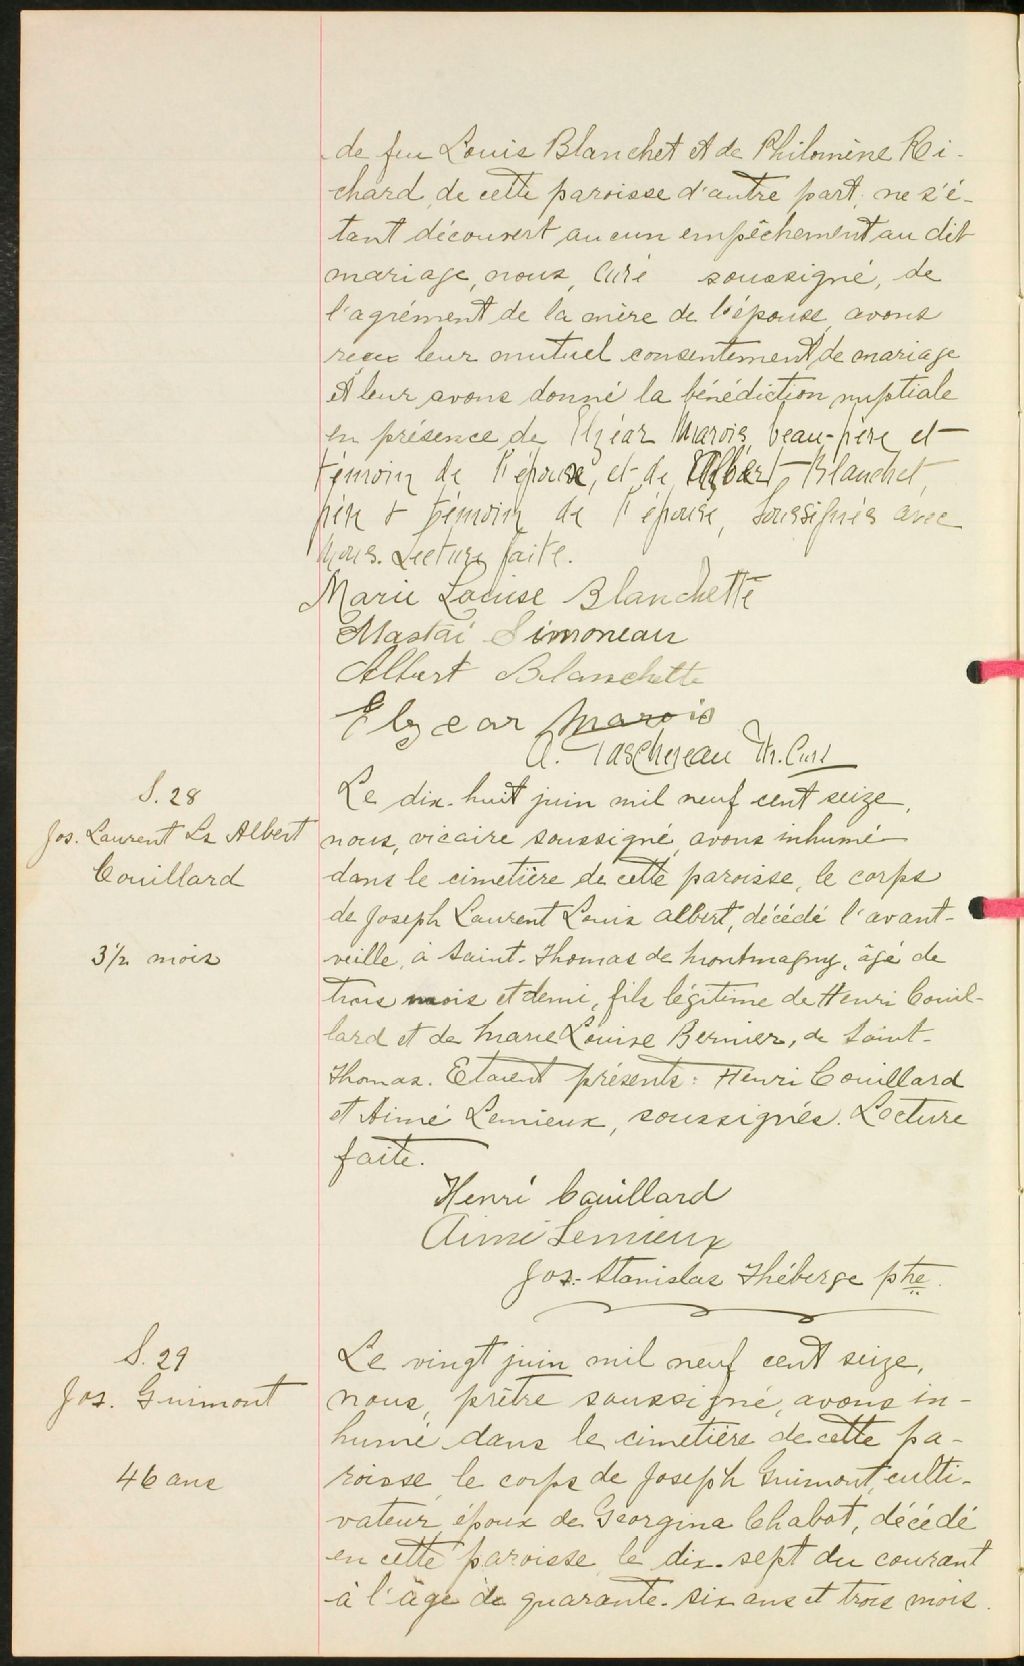 de feu Louis Blanchet et de Philomène Ri-
chard, de cette paroisse d'autre part; ne s'é-
tant découvert aucun empêchement au dit
mariage, nous, Curé soussigné, de
l'agrément de la mère de l'épouse, avons
reçu leur mutuel consentement de mariage
et leur avons donné la bénédiction nuptiale
en présence de Elzéar Marois, beau-père et
témoin de l'époux, et de Albert Blanchet,
père & témoin de l'épouse, soussignés avec
nous. Lecture faite.
Marie Louise Blanchette
Mastaï Simoneau
Albert Blanchette
Elzear Marois
A. Taschereau Ptr. Curé
S. 28
Jos. Laurent Ls Albert
Couillard
3 1/2 mois
Le dix-huit juin mil neuf cent seize,
nous, vicaire soussigné, avons inhumé
dans le cimetière de cette paroisse, le corps
de Joseph Laurent Louis Albert, décédé l'avant-
veille, à Saint-Thomas de Montmagny, âgé de
trois mois et demi, fils légitime de Henri Couil-
lard et de Marie Louise Bernier, de Saint-
Thomas. Etaient présents: Henri Couillard
et Aimé Lemieux, soussignés. Lecture
faite.
Henri Couillard
Aimé Lemieux
Jos.-Stanislas Théberge ptre.
S. 29
Jos. Guimont
46 ans
Le vingt juin mil neuf cent seize,
nous, prêtre soussigné, avons in-
humé dans le cimetière de cette pa-
roisse, le corps de Joseph Guimont, culti-
vateur, époux de Georgina Chabot, décédé
en cette paroisse le dix-sept du courant
à l'âge de quarante-six ans et trois mois.